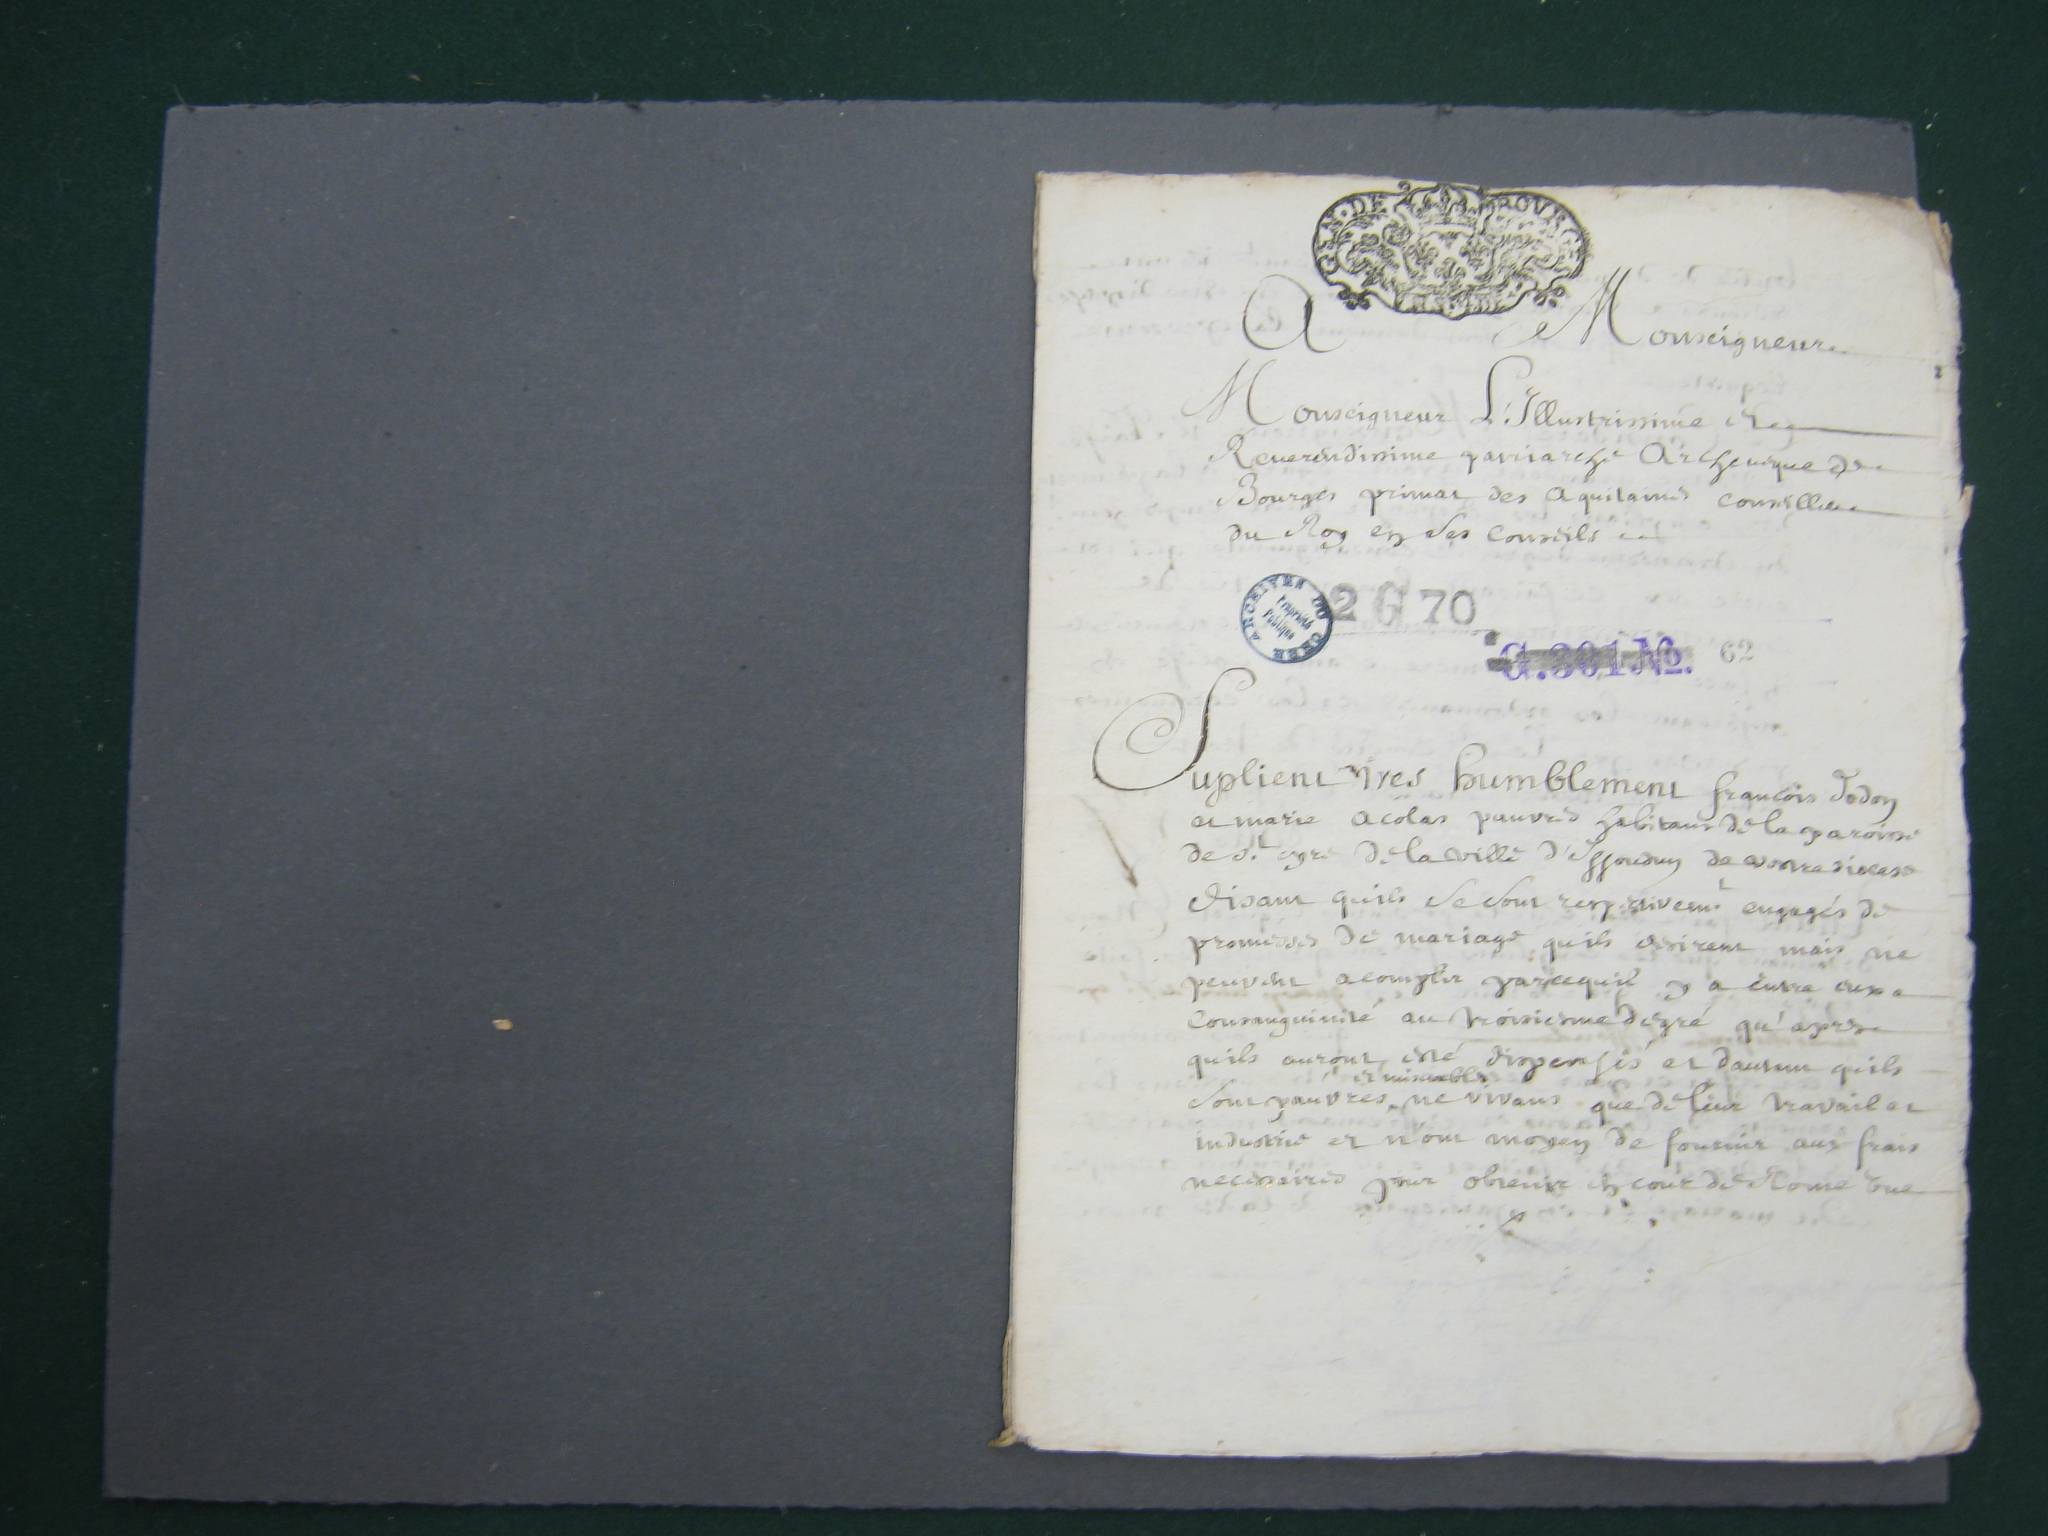 GEN. DE
A Monseigneur
Monseigneur L'Illustrissime et
Reverendissime patriarche Archeveque de
Bourges primat des aquitaines conseiller
du Roy en ses conseils
ARCHIVES DU CHER
Propriété
Publique
2 G 70
G.301 No. 62
Suplient tres humblement françois Dodon
et marie acolas pauvres habitans de la paroisse
de st cyre de la ville d'Issoudun de vostre diocese
disant quils se sont respectivemt engagés de
promesses de mariage quils desirent mais ne
peuvent acomplir parcequil y a entre eux
Consanguinité au troisiesme degré qu'apres
quils auront esté dispensés et dautant quils
et miserables
sont pauvres ne vivans que de leur travail et
industrie et n'ont moyen de fournir aux frais
necessaires pour obtenir en cour de Rome une